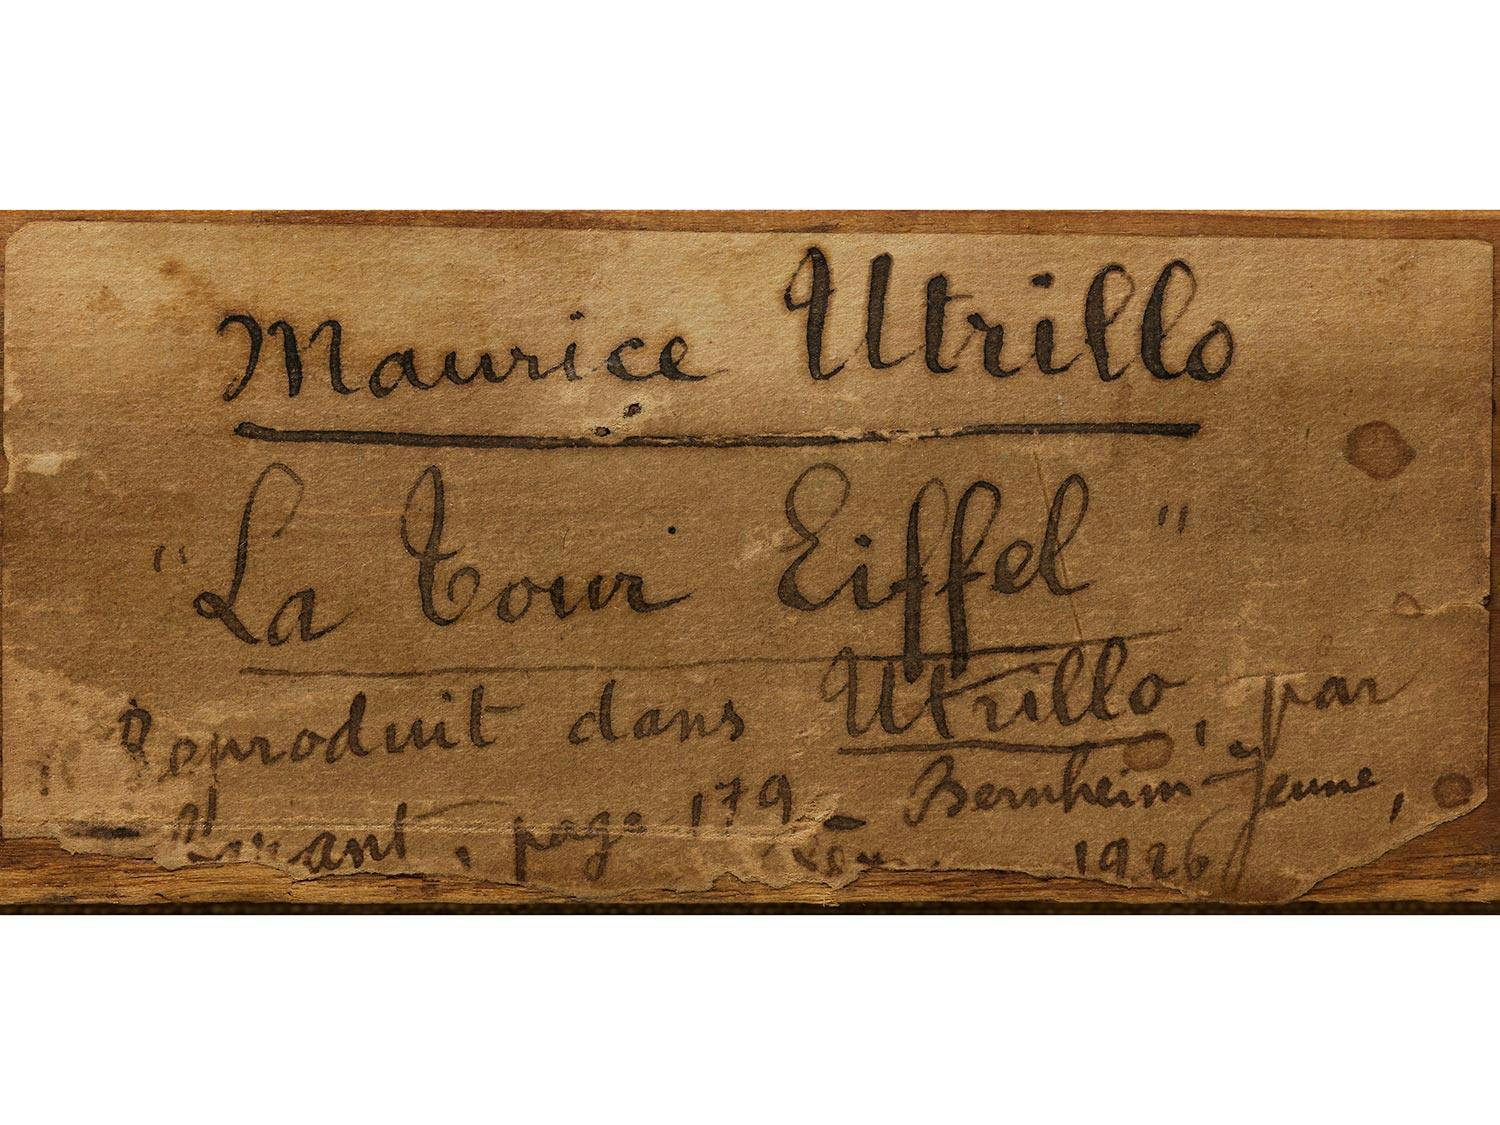 Maurice Utrillo
"La Tour Eiffel"
Reproduit dans Utrillo, par
page 179 _ Bernheim-Jeune,
1926